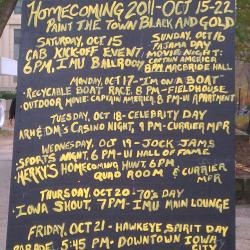 HOMECOMING 2011-OCT 15-22
PAINT THE TOWN BLACK AND GOLD
SATURDAY, OCT 15
CAB KICKOFF EVENT
6PM, IMU BALLROOM
SUNDAY, OCT 16
PAJAMA DAY
MOVIE NIGHT:
CAPTAIN AMERICA
8PM, MACBRIDE HALL
MONDAY, OCT 17-"IM ON A BOAT"
• RECYCLABLE BOAT RACE, 8PM-FIELDHOUSE
• OUTDOOR MOVIE: CAPTAIN AMERICA, 8PM-UI APARTMENT
TUESDAY, OCT 18-CELEBRITY DAY
ARH & DM'S CASINO NIGHT, 9PM-CURRIER MPR
WEDNESDAY, OCT 19-JOCK JAMS
• SPORTS NIGHT, 6PM-UI HALL OF FAME
• HERKY'S HOMECOMING HUNT, 6PM,
QUAD ROOM & CURRIER
MPR
THURSDAY, OCT 20-70'S DAY
IOWA SHOUT, 7PM-IMU MAIN LOUNGE
FRIDAY, OCT 21-HAWKEYE SPIRIT DAY
PARADE, 5:45 PM-DOWNTOWN IOWA
CITY